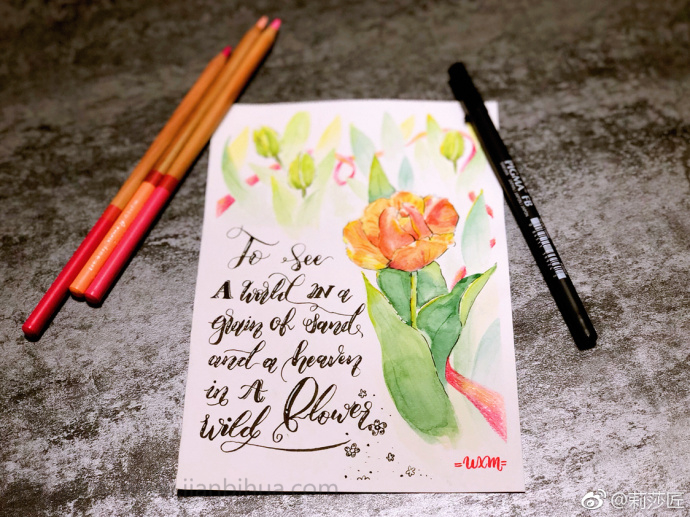 To see
A world IN a
grain of sand
and a heaven
in A
wild flower
=WXM=
PIGMA FB
jianbihua.com
@莉莎匠